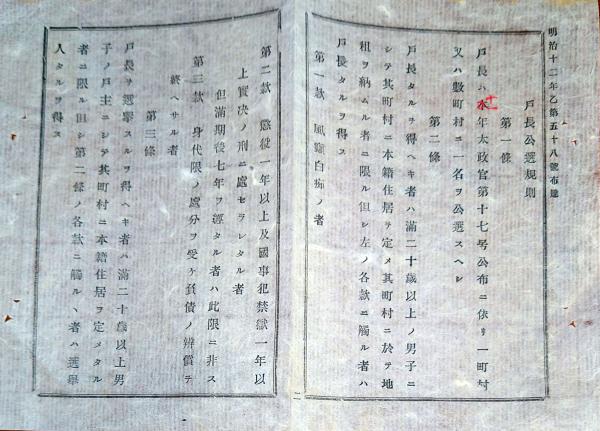 明治十二年乙第五十八號布達
戸長公選規則
第一條
戸長ハ本年太政官第十七号公布ニ依リ一町村
十一
又ハ數町村ニ一名ヲ公選スヘシ
第二條
戸長タルヲ得ヘキ者ハ滿二十歲以上ノ男子ニ
シテ其町村ニ本籍住居ヲ定メ其町村ニ於テ地
租ヲ納ムル者ニ限ル但シ左ノ各款ニ觸ル者ハ
戸長タルヲ得ス
第一款 風癲白痴ノ者
二
第二款 懲役一年以上及國事犯禁獄一年以
上實决ノ刑ニ處セラレタル者
但滿期後七年ヲ經タル者ハ此限ニ非ス
第三款 身代限ノ處分ヲ受ケ負債ノ辨償ヲ
終ヘサル者
第三條
戸長ヲ選擧スルヲ得ヘキ者ハ滿二十歲以上男
子ノ戸主ニシテ其町村ニ本籍住居ヲ定メタル
者ニ限ル但シ第二條ノ各款ニ觸ルヽ者ハ選擧
人タルヲ得ス